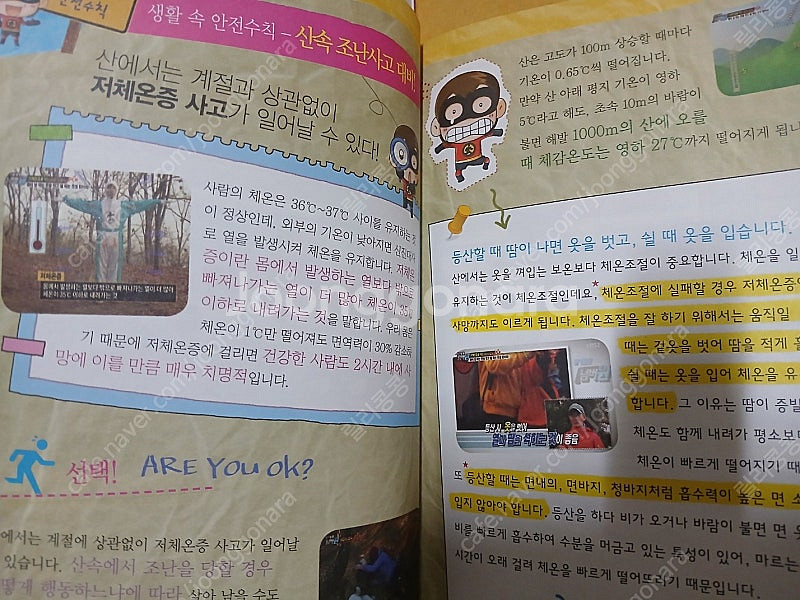 안전수칙
생활 속 안전수칙 – 산속 조난사고 대비!
산에서는 계절과 상관없이
저체온증 사고가 일어날 수 있다!
사람의 체온은 36℃~37℃ 사이를 유지하는 것
이 정상인데, 외부의 기온이 낮아지면 신진대사
로 열을 발생시켜 체온을 유지합니다. 저체온
증이란 몸에서 발생하는 열보다 밖으로
빠져나가는 열이 더 많아 체온이 35℃
이하로 내려가는 것을 말합니다. 우리 몸은
체온이 1℃만 떨어져도 면역력이 30% 감소하
기 때문에 저체온증에 걸리면 건강한 사람도 2시간 내에 사
망에 이를 만큼 매우 치명적입니다.
저체온증
몸에서 발생하는 열보다 밖으로 빠져나가는 열이 더 많아
체온이 35℃ 이하로 내려가는 것
선택! ARE YOU OK?
에서는 계절에 상관없이 저체온증 사고가 일어날
있습니다. 산속에서 조난을 당할 경우
떻게 행동하느냐에 따라 살아 남을 수도
산은 고도가 100m 상승할 때마다
기온이 0.65℃씩 떨어집니다.
만약 산 아래 평지 기온이 영하
5℃라고 해도, 초속 10m의 바람이
불면 해발 1000m의 산에 오를
때 체감온도는 영하 27℃까지 떨어지게 됩니
등산할 때 땀이 나면 옷을 벗고, 쉴 때 옷을 입습니다.
산에서는 옷을 껴입는 보온보다 체온조절이 중요합니다. 체온을 일
유지하는 것이 체온조절인데요, *체온조절에 실패할 경우 저체온증
사망까지도 이르게 됩니다. 체온조절을 잘 하기 위해서는 움직일
때는 겉옷을 벗어 땀을 적게 흘
쉴 때는 옷을 입어 체온을 유
합니다. 그 이유는 땀이 증발
체온도 함께 내려가 평소보다
체온이 빠르게 떨어지기 때
등산 시, 옷을 벗어
열과 땀을 식히는 것이 좋음
*또 등산할 때는 면내의, 면바지, 청바지처럼 흡수력이 높은 면 소
입지 않아야 합니다. 등산을 하다 비가 오거나 바람이 불면 면 옷
비를 빠르게 흡수하여 수분을 머금고 있는 특성이 있어, 마르는
시간이 오래 걸려 체온을 빠르게 떨어뜨리기 때문입니다.
cafe.naver.com/joonggonara
joonggonara